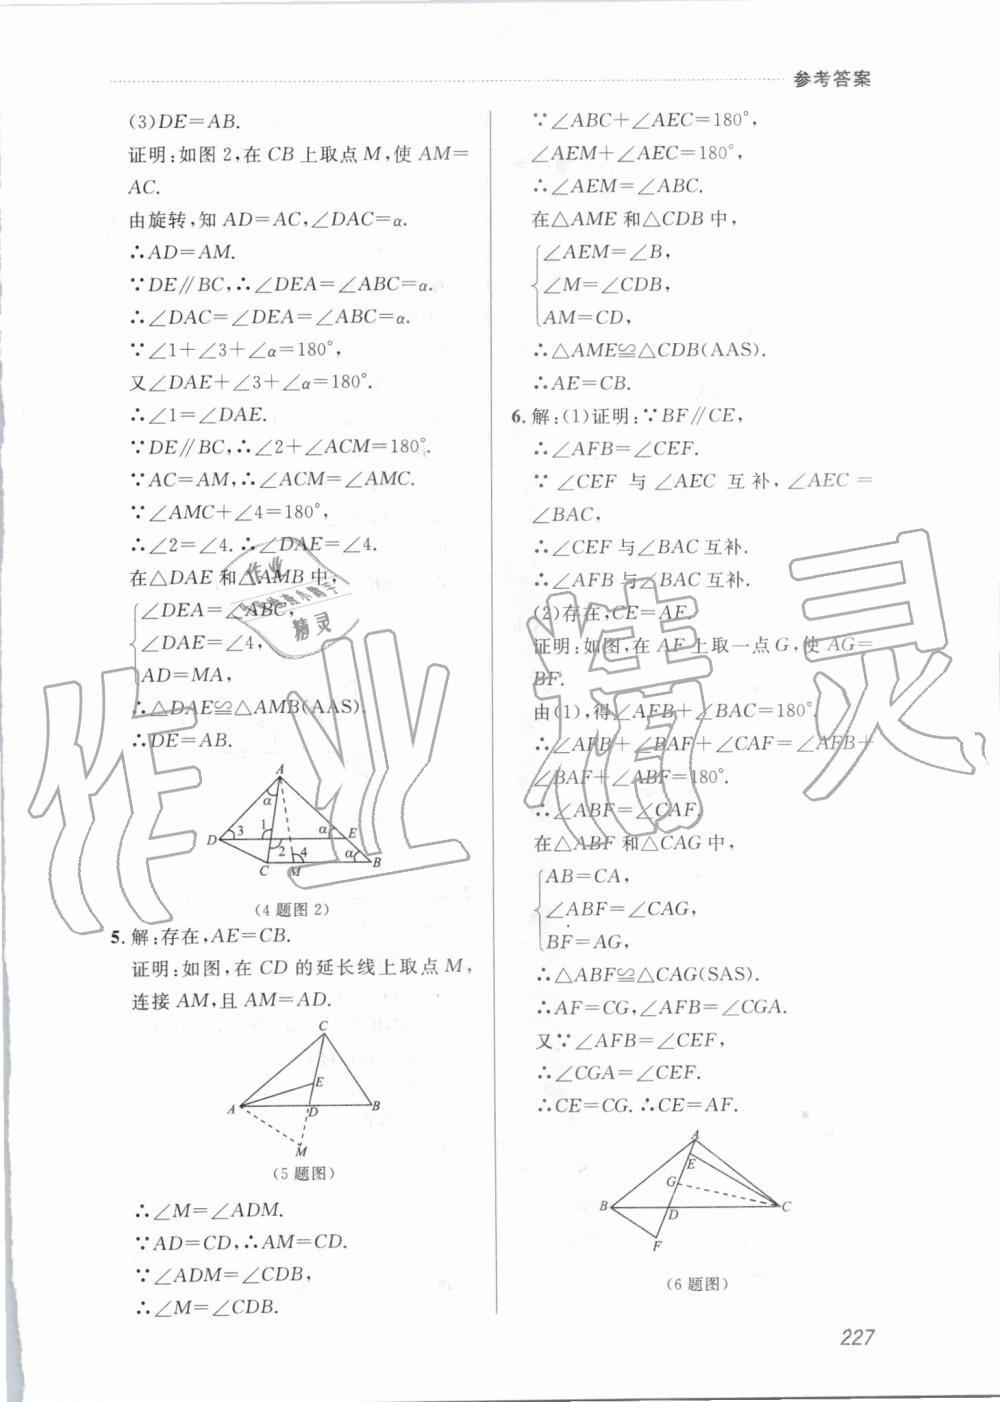 参考答案
(3)DE=AB.
证明:如图2,在CB上取点M,使AM=
AC.
由旋转,知AD=AC,∠DAC=α.
∴AD=AM.
∵DE∥BC,∴∠DEA=∠ABC=α.
∴∠DAC=∠DEA=∠ABC=α.
∵∠1+∠3+∠α=180°,
又∠DAE+∠3+∠α=180°.
∴∠1=∠DAE.
∵DE∥BC,∴∠2+∠ACM=180°.
∵AC=AM,∴∠ACM=∠AMC.
∵∠AMC+∠4=180°,
∴∠2=∠4.∴∠DAE=∠4.
在△DAE和△AMB中,
∠DEA=∠ABC,
∠DAE=∠4,
AD=MA,
∴△DAE≌△AMB(AAS).
∴DE=AB.
A
α
D 3 1 α E
2 4 α
C M B
(4题图2)
5. 解:存在,AE=CB.
证明:如图,在CD的延长线上取点M,
连接AM,且AM=AD.
C
E
A D B
M
(5题图)
∴∠M=∠ADM.
∵AD=CD,∴AM=CD.
∵∠ADM=∠CDB,
∴∠M=∠CDB.
∵∠ABC+∠AEC=180°,
∠AEM+∠AEC=180°,
∴∠AEM=∠ABC.
在△AME和△CDB中,
∠AEM=∠B,
∠M=∠CDB,
AM=CD,
∴△AME≌△CDB(AAS).
∴AE=CB.
6. 解:(1)证明:∵BF∥CE,
∴∠AFB=∠CEF.
∵∠CEF与∠AEC互补,∠AEC=
∠BAC,
∴∠CEF与∠BAC互补.
∴∠AFB与∠BAC互补.
(2)存在,CE=AF.
证明:如图,在AF上取一点G,使AG=
BF.
由(1),得∠AFB+∠BAC=180°.
∴∠AFB+∠BAF+∠CAF=∠AFB+
∠BAF+∠ABF=180°.
∴∠ABF=∠CAF.
在△ABF和△CAG中,
AB=CA,
∠ABF=∠CAG,
BF=AG,
∴△ABF≌△CAG(SAS).
∴AF=CG,∠AFB=∠CGA.
又∵∠AFB=∠CEF,
∴∠CGA=∠CEF.
∴CE=CG.∴CE=AF.
A
E
G
B D C
F
(6题图)
227
作业精灵
作业
精灵